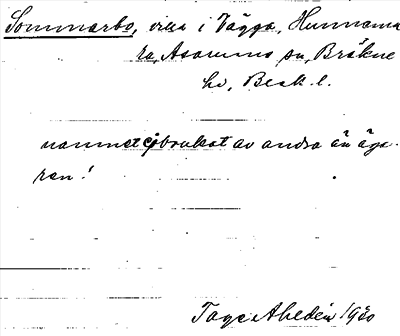 Sommarbo, villa i Vägga, Hunnama
ra, Asarums sn, Bräkne
hd, Blek. l.
namnet ej brukat av andra än äga-
ren!
Tage Ahldén 1930